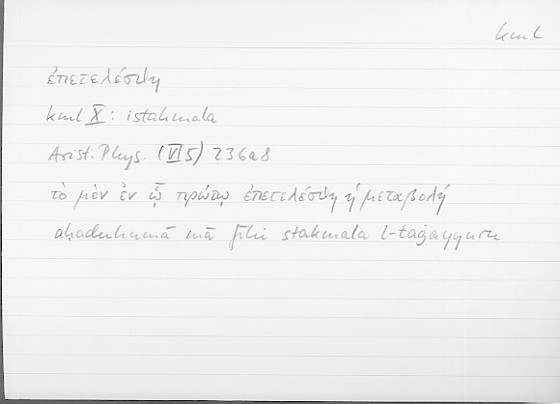 kml
ἐπετελέσθη
kml X: istakmala
Arist. Phys. (VI 5) 236a8
τὸ μὲν ἐν ᾧ πρώτῳ ἐπετελέσθη ἡ μεταβολή
aḥaduhumā mā fīhi stakmala l-taġayyuru